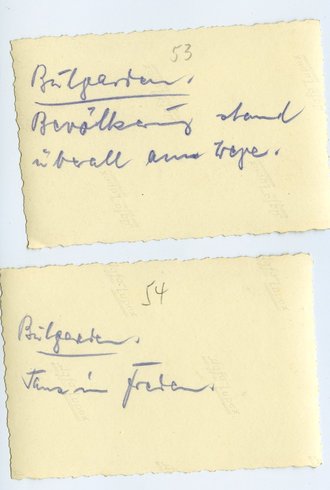 53
Bulgarien.
Bevölkerung stand
überall am Wege.
54
Bulgarien.
Tanz im Freien.